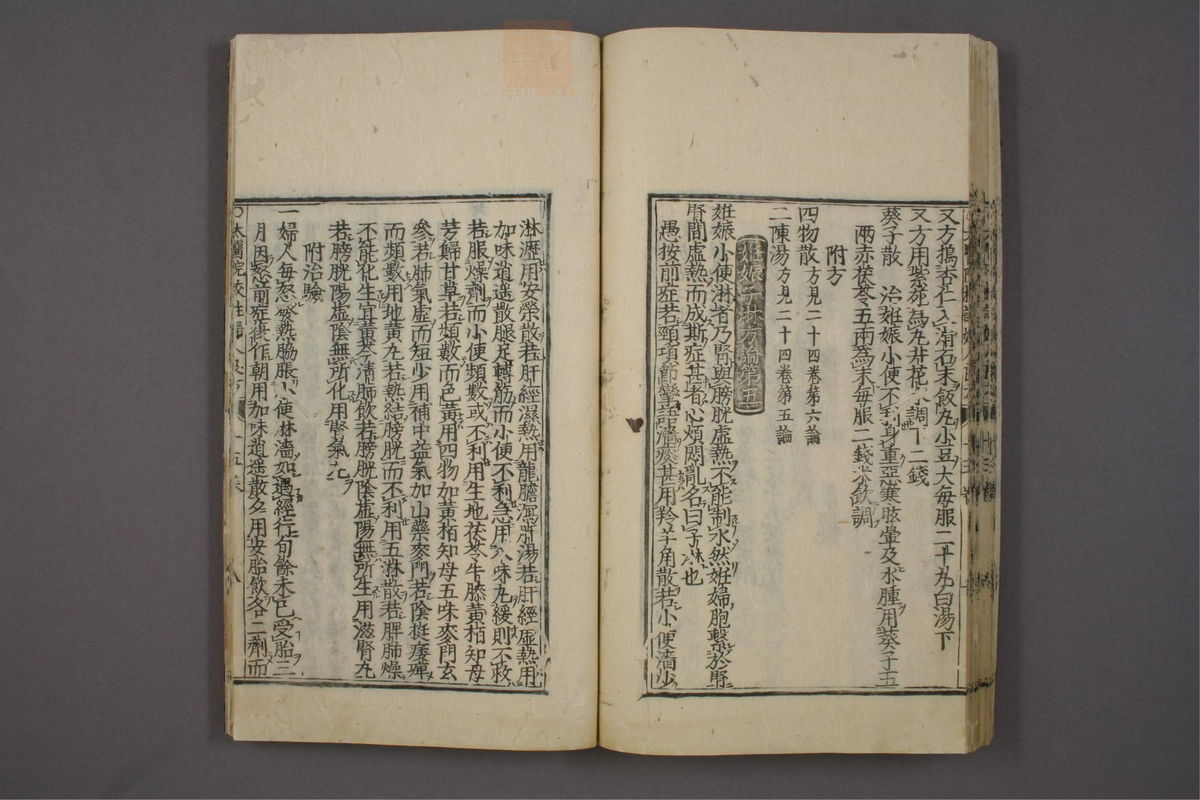 又方搗杏仁入滑石末飯丸小豆大每服二十丸白湯下
又方用紫菀為丸井花水調下二錢
葵子散　治姙娠小便不利身重惡寒眩暈及水腫用葵子五
兩赤茯苓五兩為末每服二錢米飲調
附方
四物散方見二十四卷第六論
二陳湯方見二十四卷第五論
姙娠子淋方論第五
姙娠小便淋者乃腎與膀胱虛熱不能制水然姙婦胞繫於腎
腎間虛熱而成斯症甚者心煩悶亂名曰子淋也
愚按前症若頸項節攣語澁痰甚用羚羊角散若小便濇少
淋瀝用安榮散若肝經濕熱用龍膽瀉肝湯若肝經虛熱用
加味逍遙散腿足轉筋而小便不利急用八味丸緩則不救
若服燥劑而小便頻數或不利用生地茯苓牛膝黃栢知母
芎歸甘草若頻數而色黃用四物加黃栢知母五味麥門玄
參若肺氣虛而短少用補中益氣加山藥麥門若陰挺痿痺
而頻數用地黃丸若熱結膀胱而不利用五淋散若脾肺燥
不能化生宜黃芩清肺飲若膀胱陰虛陽無所生用滋腎丸
若膀胱陽虛陰無所化用腎氣丸
附治驗
一婦人每怒發熱脇脹小便淋濇如遇經行旬餘未已受胎三
月因怒前症復作朝用加味逍遙散夕用安胎飲各二劑而
○太醫院校註婦人良方　十五卷　八